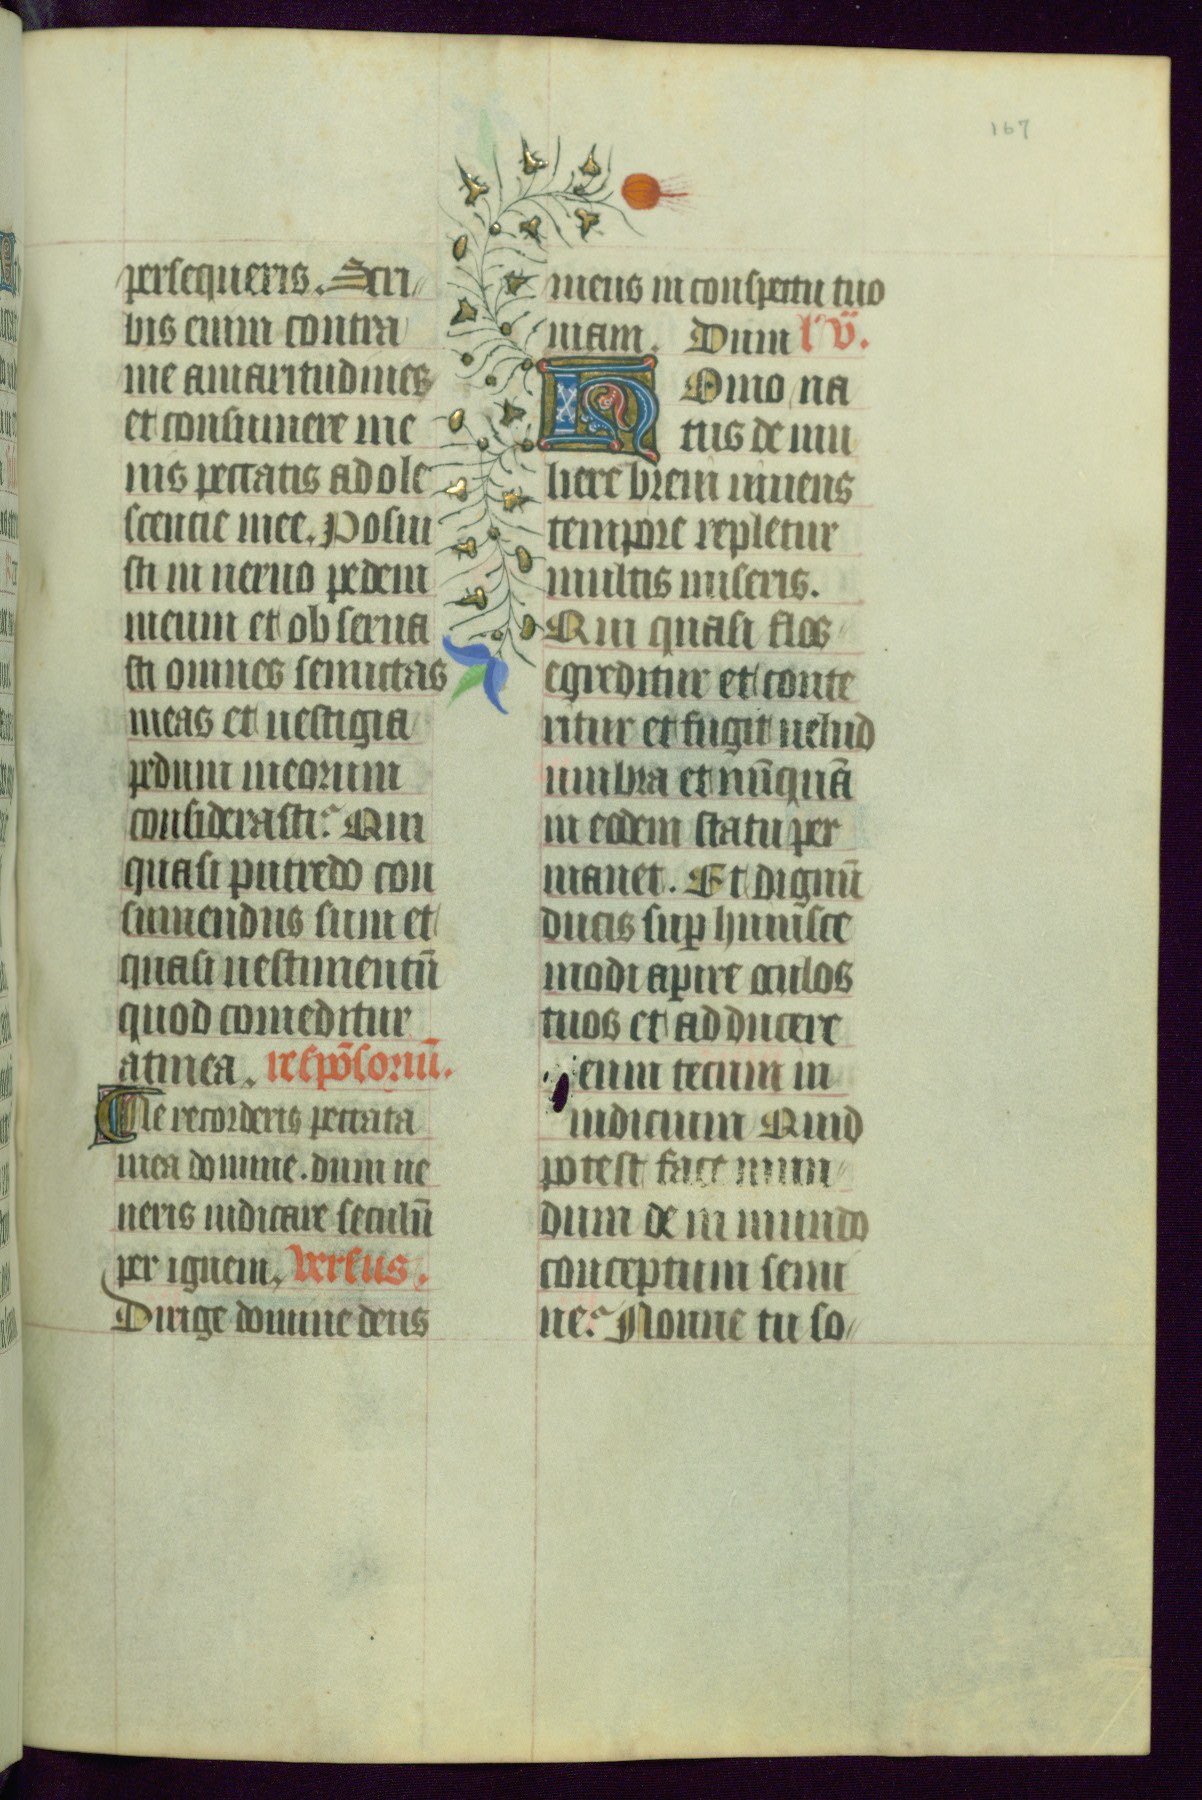 167
persequeris. Scri
bis enim contra
me amaritudines
et consumere me
uis peccatis adole
scentie mee. Posui
sti in neruo pedem
meum et obserua
sti omnes semittas
meas et uestigia
pedum meorum
considerasti? Qui
quasi putredo con
sumendus sum et
quasi uestimentū
quod comeditur
a tinea. respōsoriū.
Ne recorderis peccata
mea domine. dum ue
neris iudicare seculū
per ignem. versus.
Dirige domine deus
meus in conspectu tuo
uiam. Dum l' v̄.
Homo na
tus de mu
liere breui uiuens
tempore repletur
multis miseris.
Qui quasi flos
egreditur et conte
ritur et fugit uelud
umbra et nūquā
in eodem statu per
manet. Et dignū
ducis sup huiusce
modi apire oculos
tuos et adducere
eum tecum in
iudicium Quid
potest face mun
dum de inmundo
conceptum semi
ne? Nonne tu so